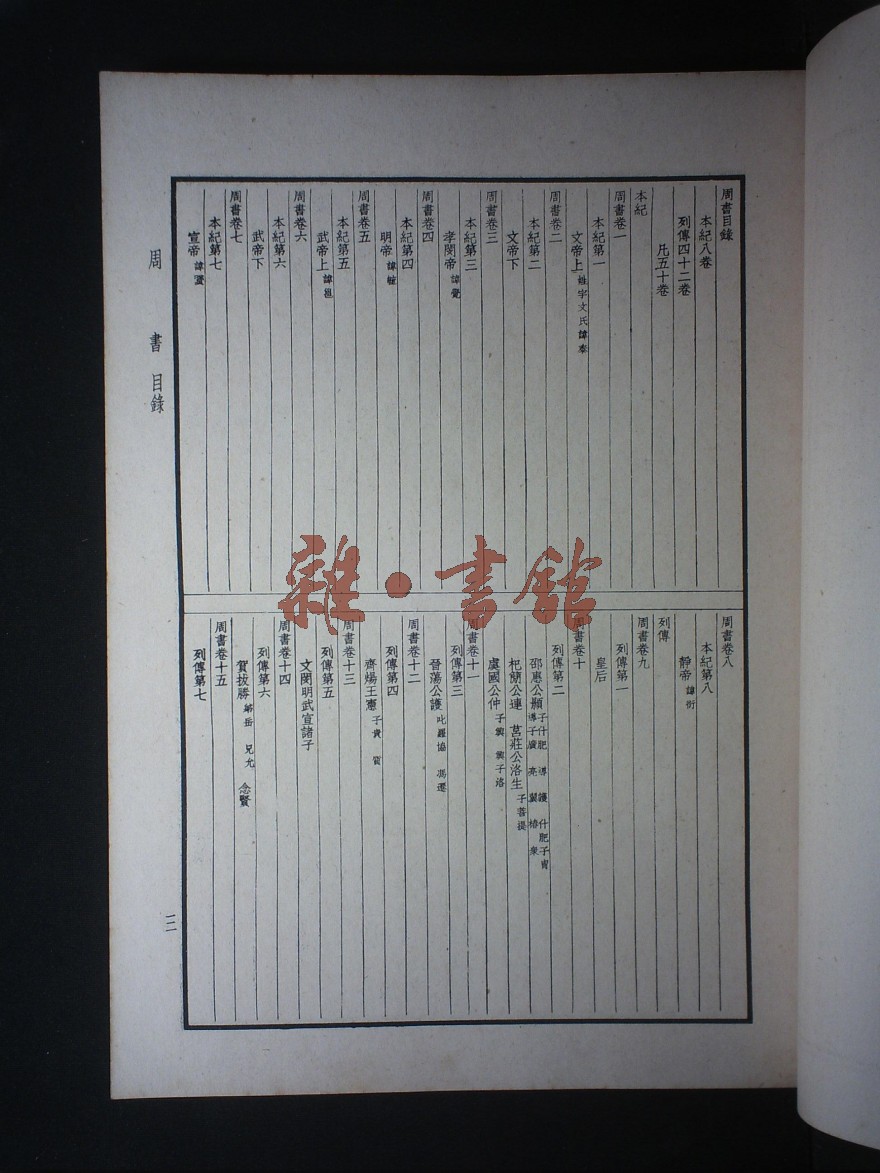 周書目錄
本紀八卷
列傳四十二卷
凡五十卷
本紀
周書卷一
本紀第一
文帝上 姓宇文氏諱泰
周書卷二
本紀第二
文帝下
周書卷三
本紀第三
孝閔帝 諱覺
周書卷四
本紀第四
明帝 諱毓
周書卷五
本紀第五
武帝上 諱邕
周書卷六
本紀第六
武帝下
周書卷七
本紀第七
宣帝 諱贇
周書卷八
本紀第八
靜帝 諱衍
列傳
周書卷九
列傳第一
皇后
周書卷十
列傳第二
邵惠公顥 子什肥 導 護 什肥子胄
導子廣 亮 翼 椿 衆
杞簡公連 莒莊公洛生 子菩提
虞國公仲 子興 興子洛
周書卷十一
列傳第三
晉蕩公護 叱羅協 馮遷
周書卷十二
列傳第四
齊煬王憲 子貴 質
周書卷十三
列傳第五
文閔明武宣諸子
周書卷十四
列傳第六
賀拔勝 弟岳 兄允 念賢
周書卷十五
列傳第七
周書 目錄
雜·書館